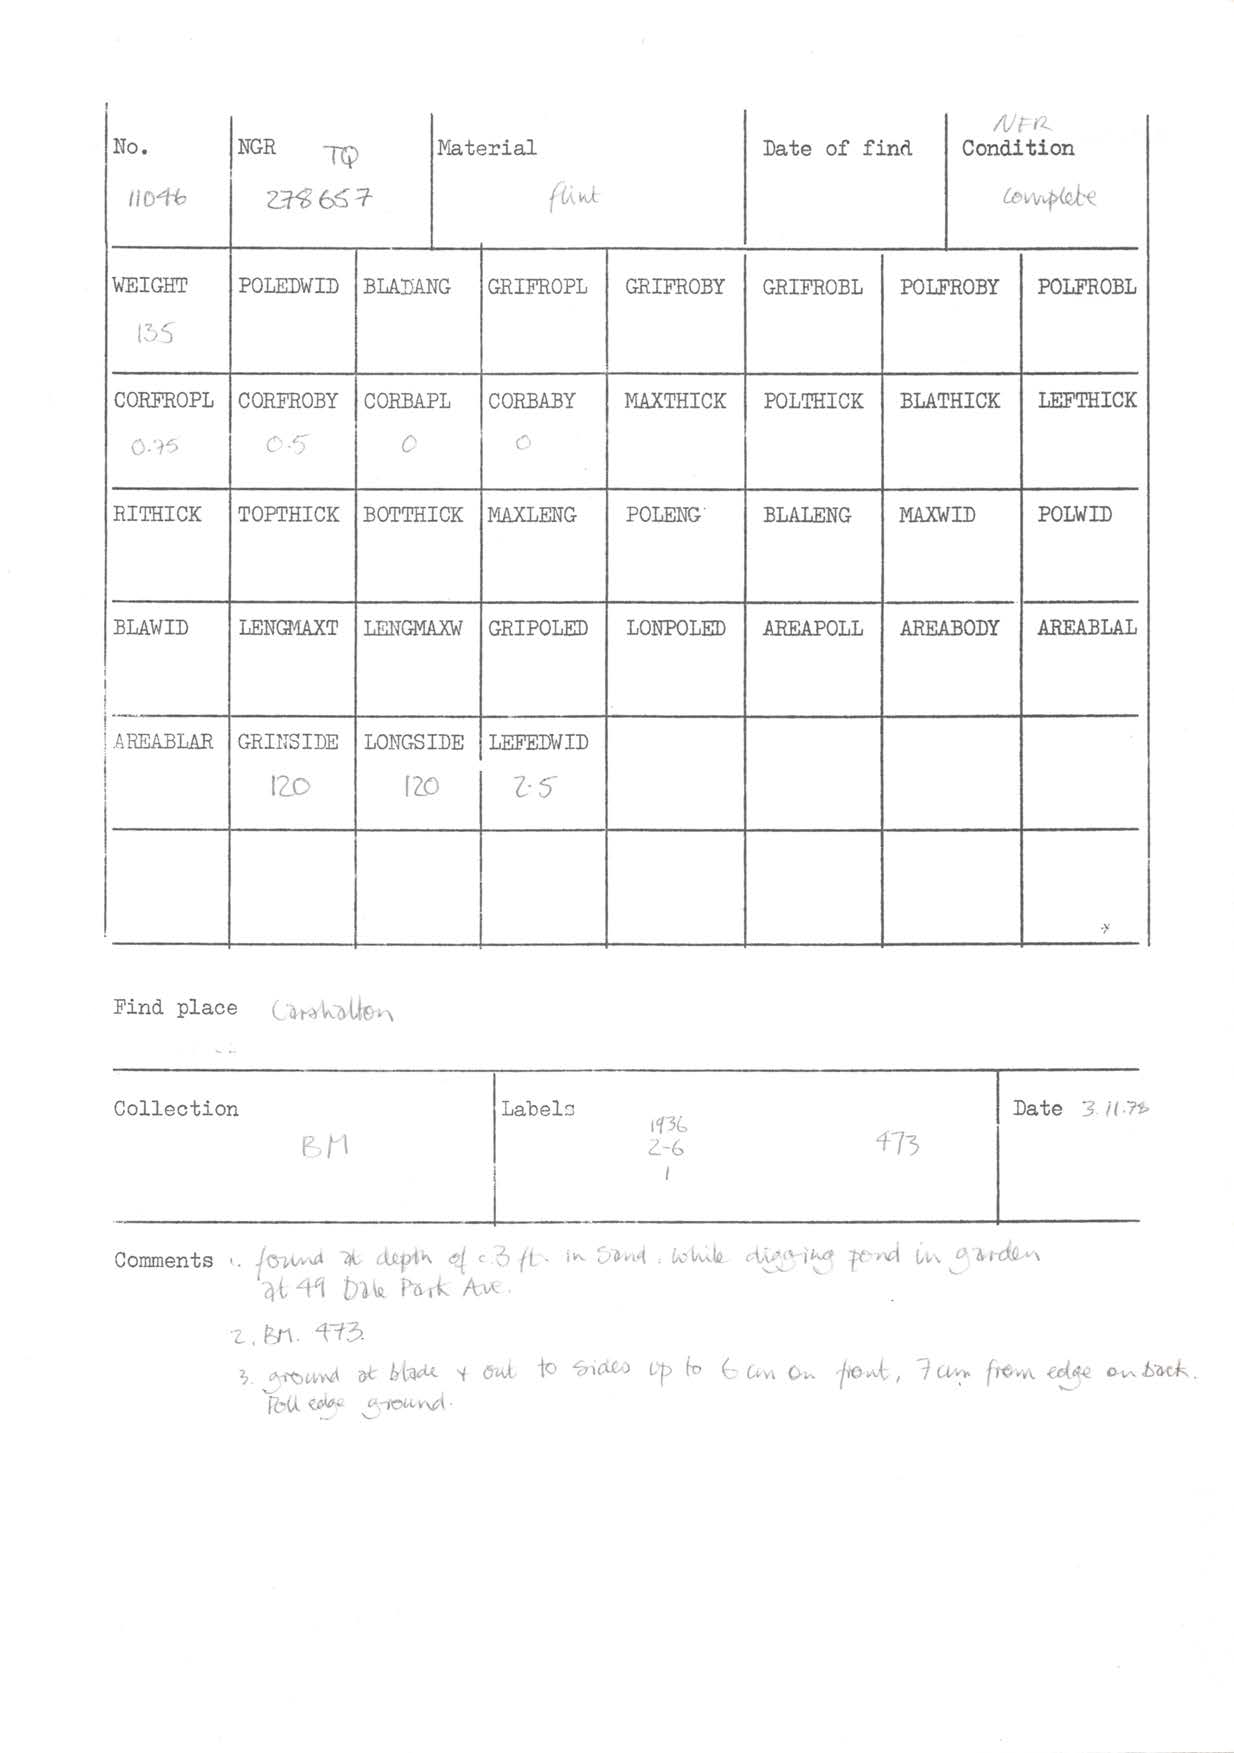 NFR
No. NGR TQ Material Date of find Condition
11046 278657 flint complete
WEIGHT POLEDWID BLADANG GRIFROPL GRIFROBY GRIFROBL POLFROBY POLFROBL
135
CORFROPL CORFROBY CORBAPL CORBABY MAXTHICK POLTHICK BLATHICK LEFTHICK
0.75 0.5 0 0
RITHICK TOPTHICK BOTTHICK MAXLENG POLENG BLALENG MAXWID POLWID
BLAWID LENGMAXT LENGMAXW GRIPOLED LONPOLED AREAPOLL AREABODY AREABLAL
AREABLAR GRINSIDE LONGSIDE LEFEDWID
120 120 2.5
Find place Carshalton
Collection Labels Date 3.11.78
1936
BM 2-6 473
1
Comments 1. found at depth of c.3 ft. in sand. while digging pond in garden
at 49 Dale Park Ave.
2. BM. 473.
3. ground at blade + out to sides up to 6 cm on front, 7cm from edge on back.
Poll edge ground.